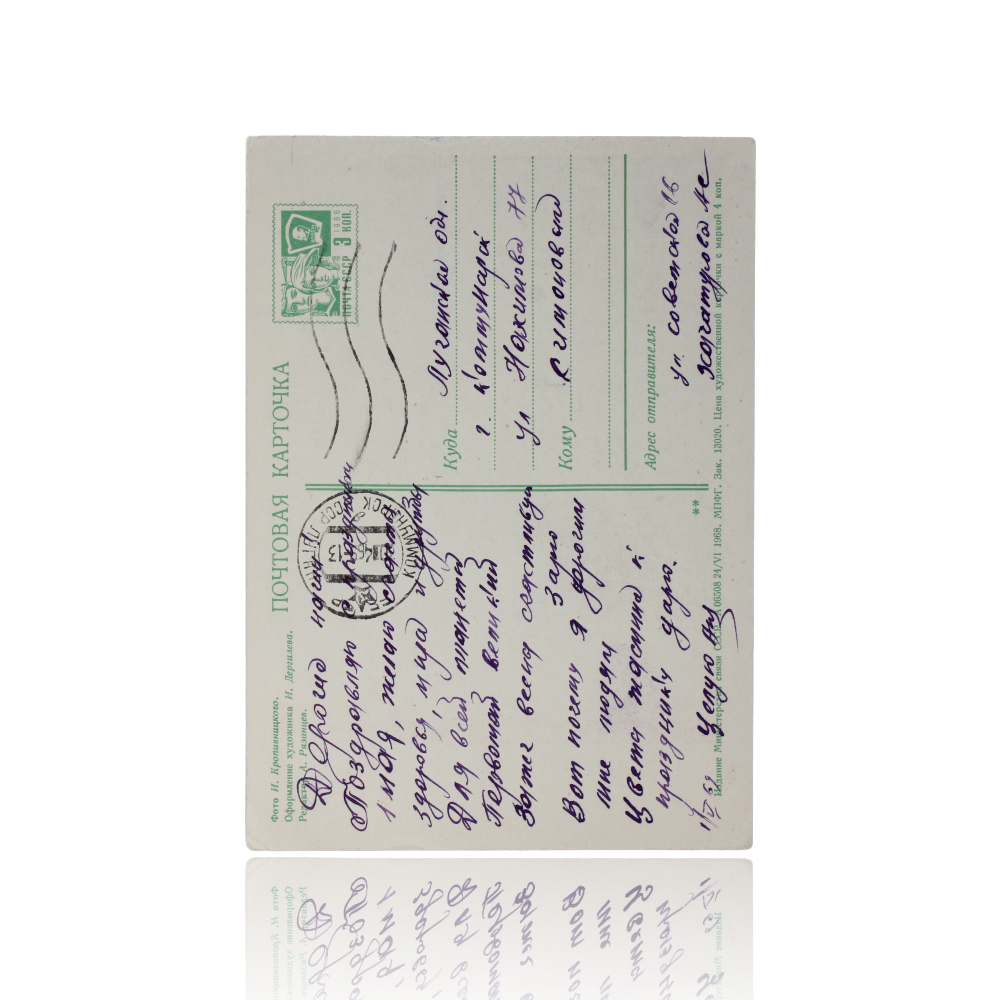 Фото И. Кропивницкого.
Оформление художника И. Дергилева.
Редактор А. Рязанцев.
ПОЧТОВАЯ КАРТОЧКА
ПОЧТА СССР 3 КОП.
1966
Дорогие
Поздравляю с праздником
1 мая, желаю счастья
здоровья, мира и дружбы
Для всей планеты
Первомай великий
Зажег весны
Вот почему я Заро
мне людям дорогим
Цветы жасмина к
празднику дарю.
Целую
Куда Луганская обл.
г. Коммунарск
ул Нахимова 77
Кому
Адрес отправителя:
ул. советская 16
**
Издание Министерства связи СССР. А 06508 24/VI 1968. МПФГ. Зак. 13020. Цена художественной карточки с маркой 4 коп.